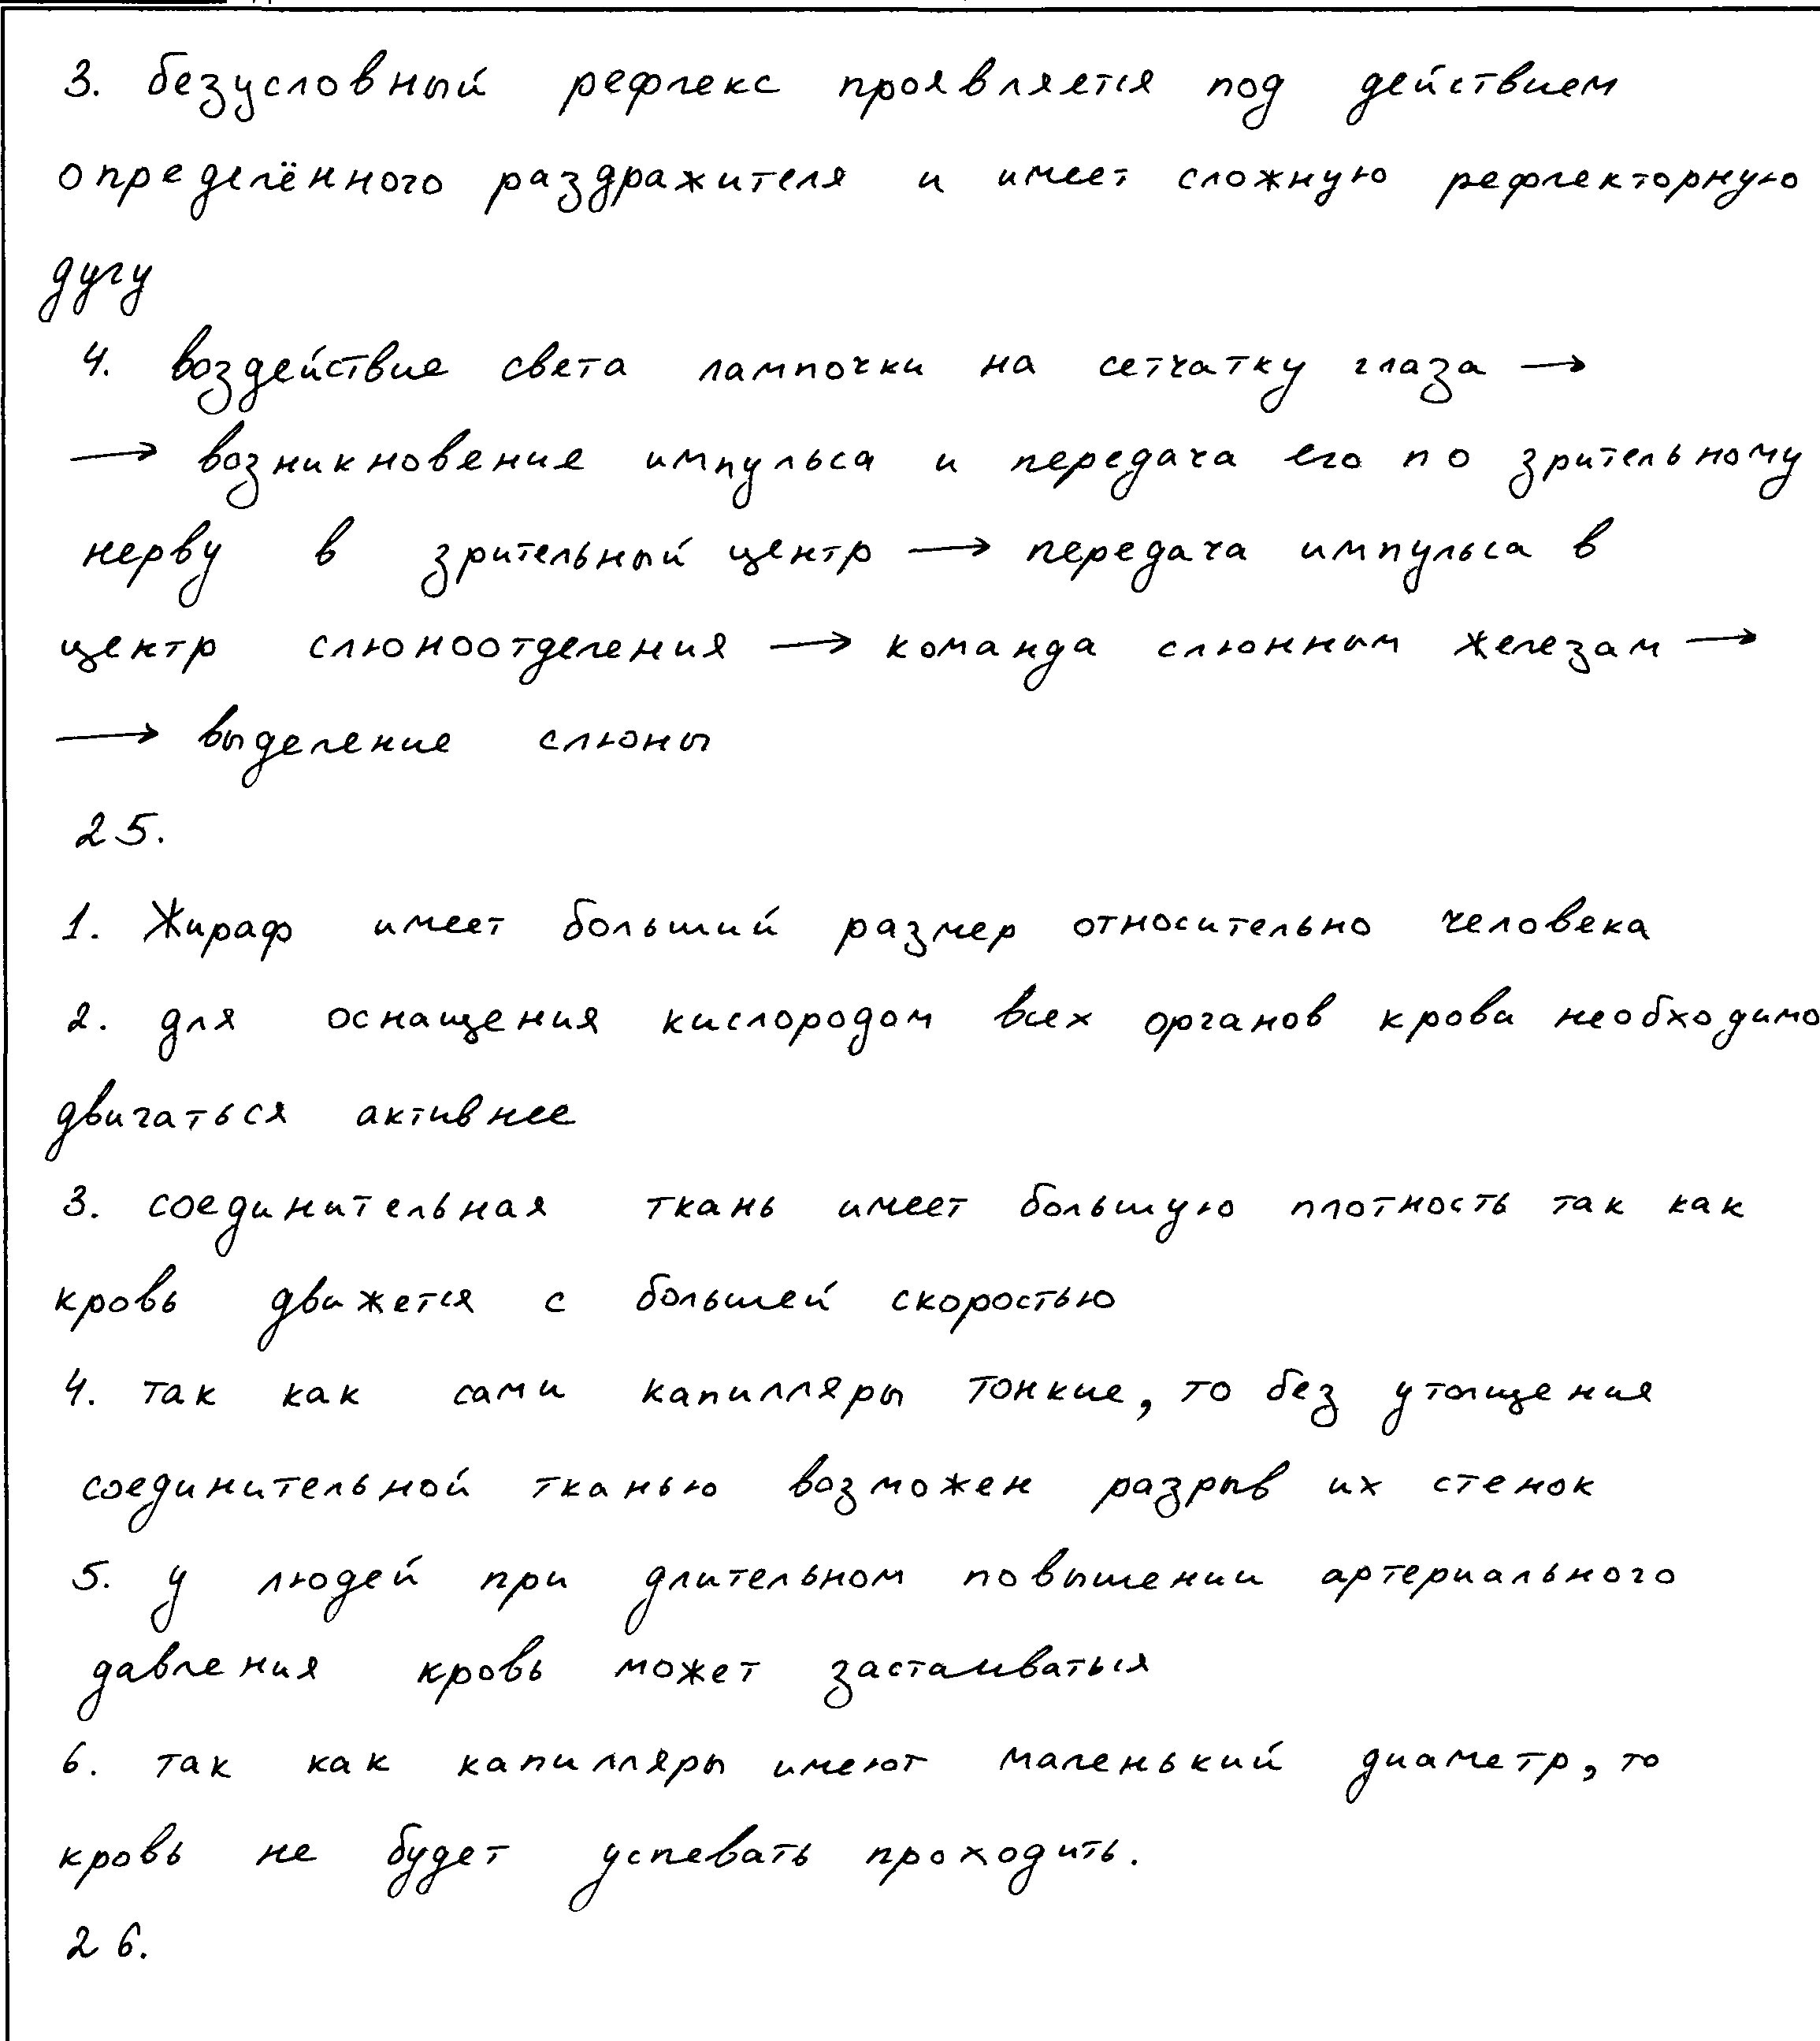 3. безусловный рефлекс проявляется под действием
определённого раздражителя и имеет сложную рефлекторную
дугу
4. воздействие света лампочки на сетчатку глаза →
→ возникновение импульса и передача его по зрительному
нерву в зрительный центр → передача импульса в
центр слюноотделения → команда слюнным железам →
→ выделение слюны
25.
1. Жираф имеет больший размер относительно человека
2. для оснащения кислородом всех органов крови необходимо
двигаться активнее
3. соединительная ткань имеет большую плотность так как
кровь движется с большей скоростью
4. так как сами капилляры тонкие, то без утолщения
соединительной тканью возможен разрыв их стенок
5. у людей при длительном повышении артериального
давления кровь может застаиваться
6. так как капилляры имеют маленький диаметр, то
кровь не будет успевать проходить.
26.